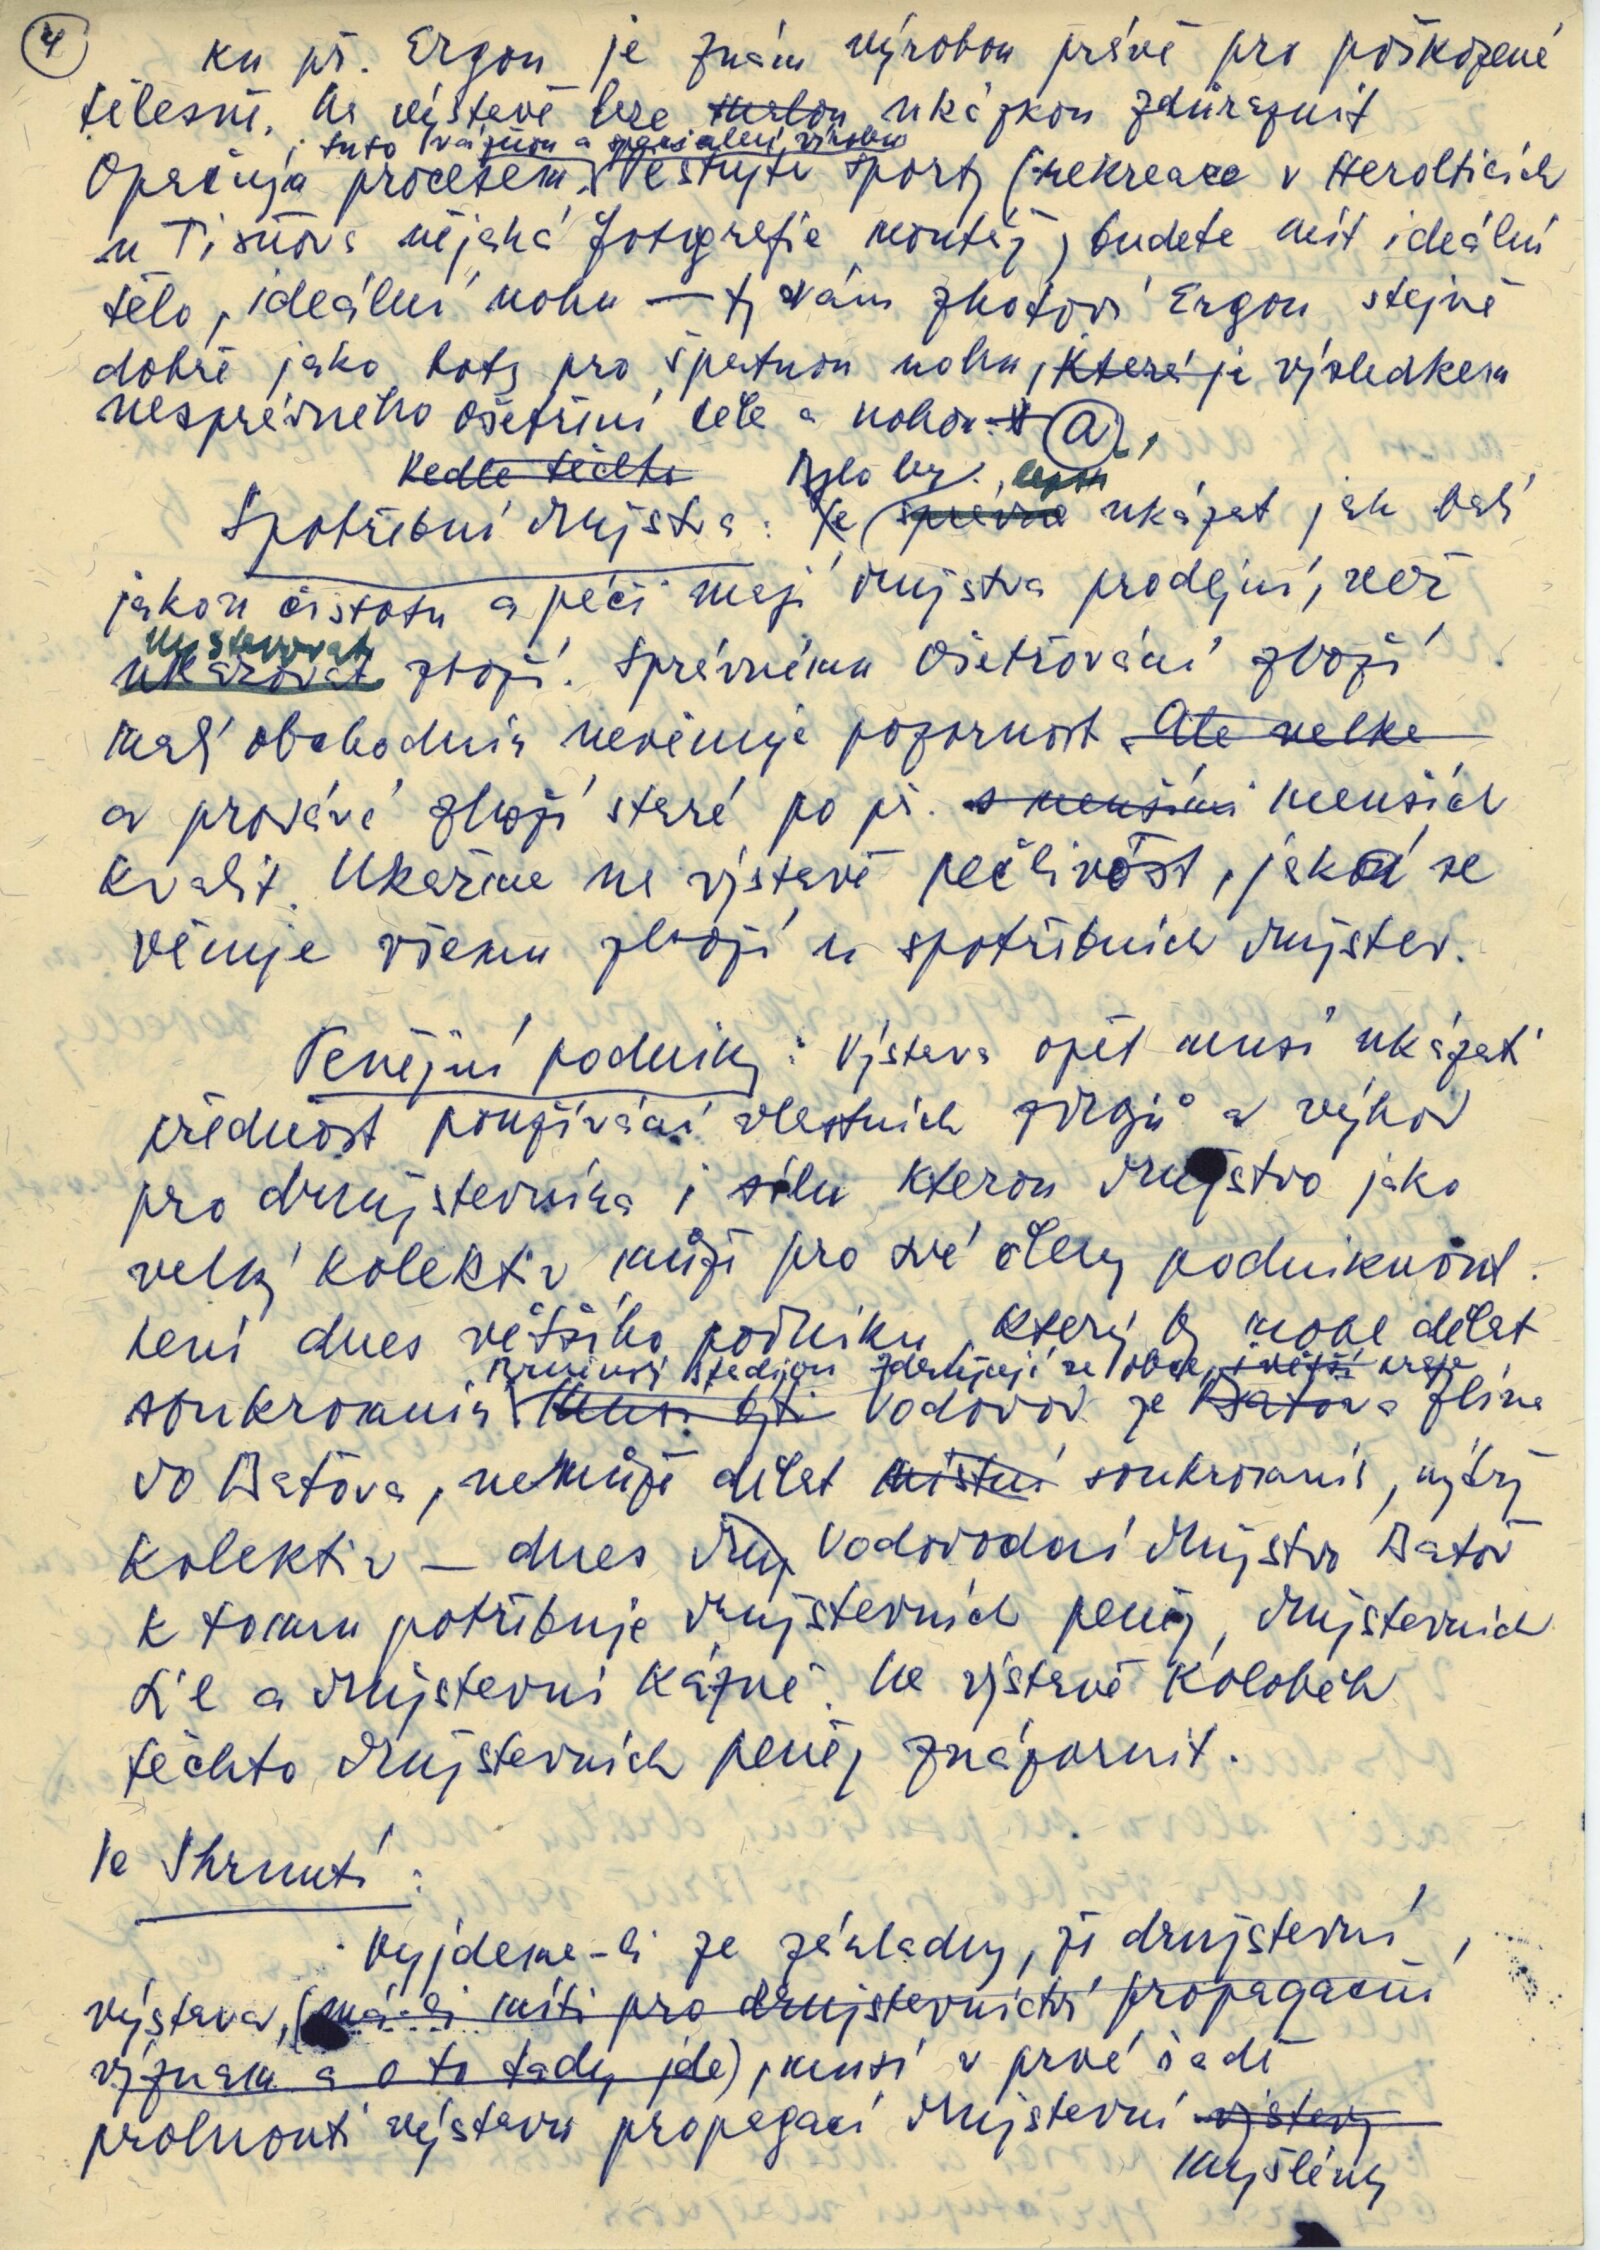 4
ku př. Ergon je znám výrobou právě pro poškozené
tělesně. Na výstavě lze malou ukázkou zdůraznit
tuto vážnou a specialení výrobu
Opačným procesem. Pěstujte sporty (rekreace v Herolticích
u Tišnova nějaká fotografie montáž) budete mít ideální
tělo, ideální nohu — ty vám zhotoví Ergon stejně
dobře jako boty pro špatnou nohu, která je výsledkem
nesprávného ošetření těla a nohou. a
Vedle těchto Bylo by lepší
Spotřební družstva: Je správné ukázat jak velí
jakou čistotu a péči mají družstva prodejní, než
vystavovat
ukazovat zboží. Správnému ošetřování zboží
malý obchodník nevěnuje pozornost. Ale velké
a prodává zboží staré po př. s menšími menších
kvalit. Ukažme na výstavě pečlivost, jaká se
věnuje všemu zboží u spotřebních družstev.
Peněžní podniky: Výstava opět musí ukázat
přednost používání vlastních zdrojů a výhod
pro družstevníka i sílu kterou družstvo jako
velký kolektiv může pro své členy podniknout.
Není dnes většího podniku, který by mohl dělat
Brněnský stadion združují se obce, i větší kraje
soukromník Musí býti Vodovod ze Baťova Zlína
do Baťova, nemůže dělat místní soukromník, nýbrž
kolektiv — dnes druž Vodovodní družstvo Baťov
k tomu potřebuje družstevních peněz, družstevních
sil a družstevní kázně. Na výstavě koloběh
těchto družstevních peněz znázornit.
Ve Shrnutí:
Vyjdeme-li ze základu, že družstevní
výstava, (má-li míti pro družstevnictví propagační
význam a o to tady jde), musí v prvé řadě
prolnouti výstavu propagací družstevní výstavy
myšlenky